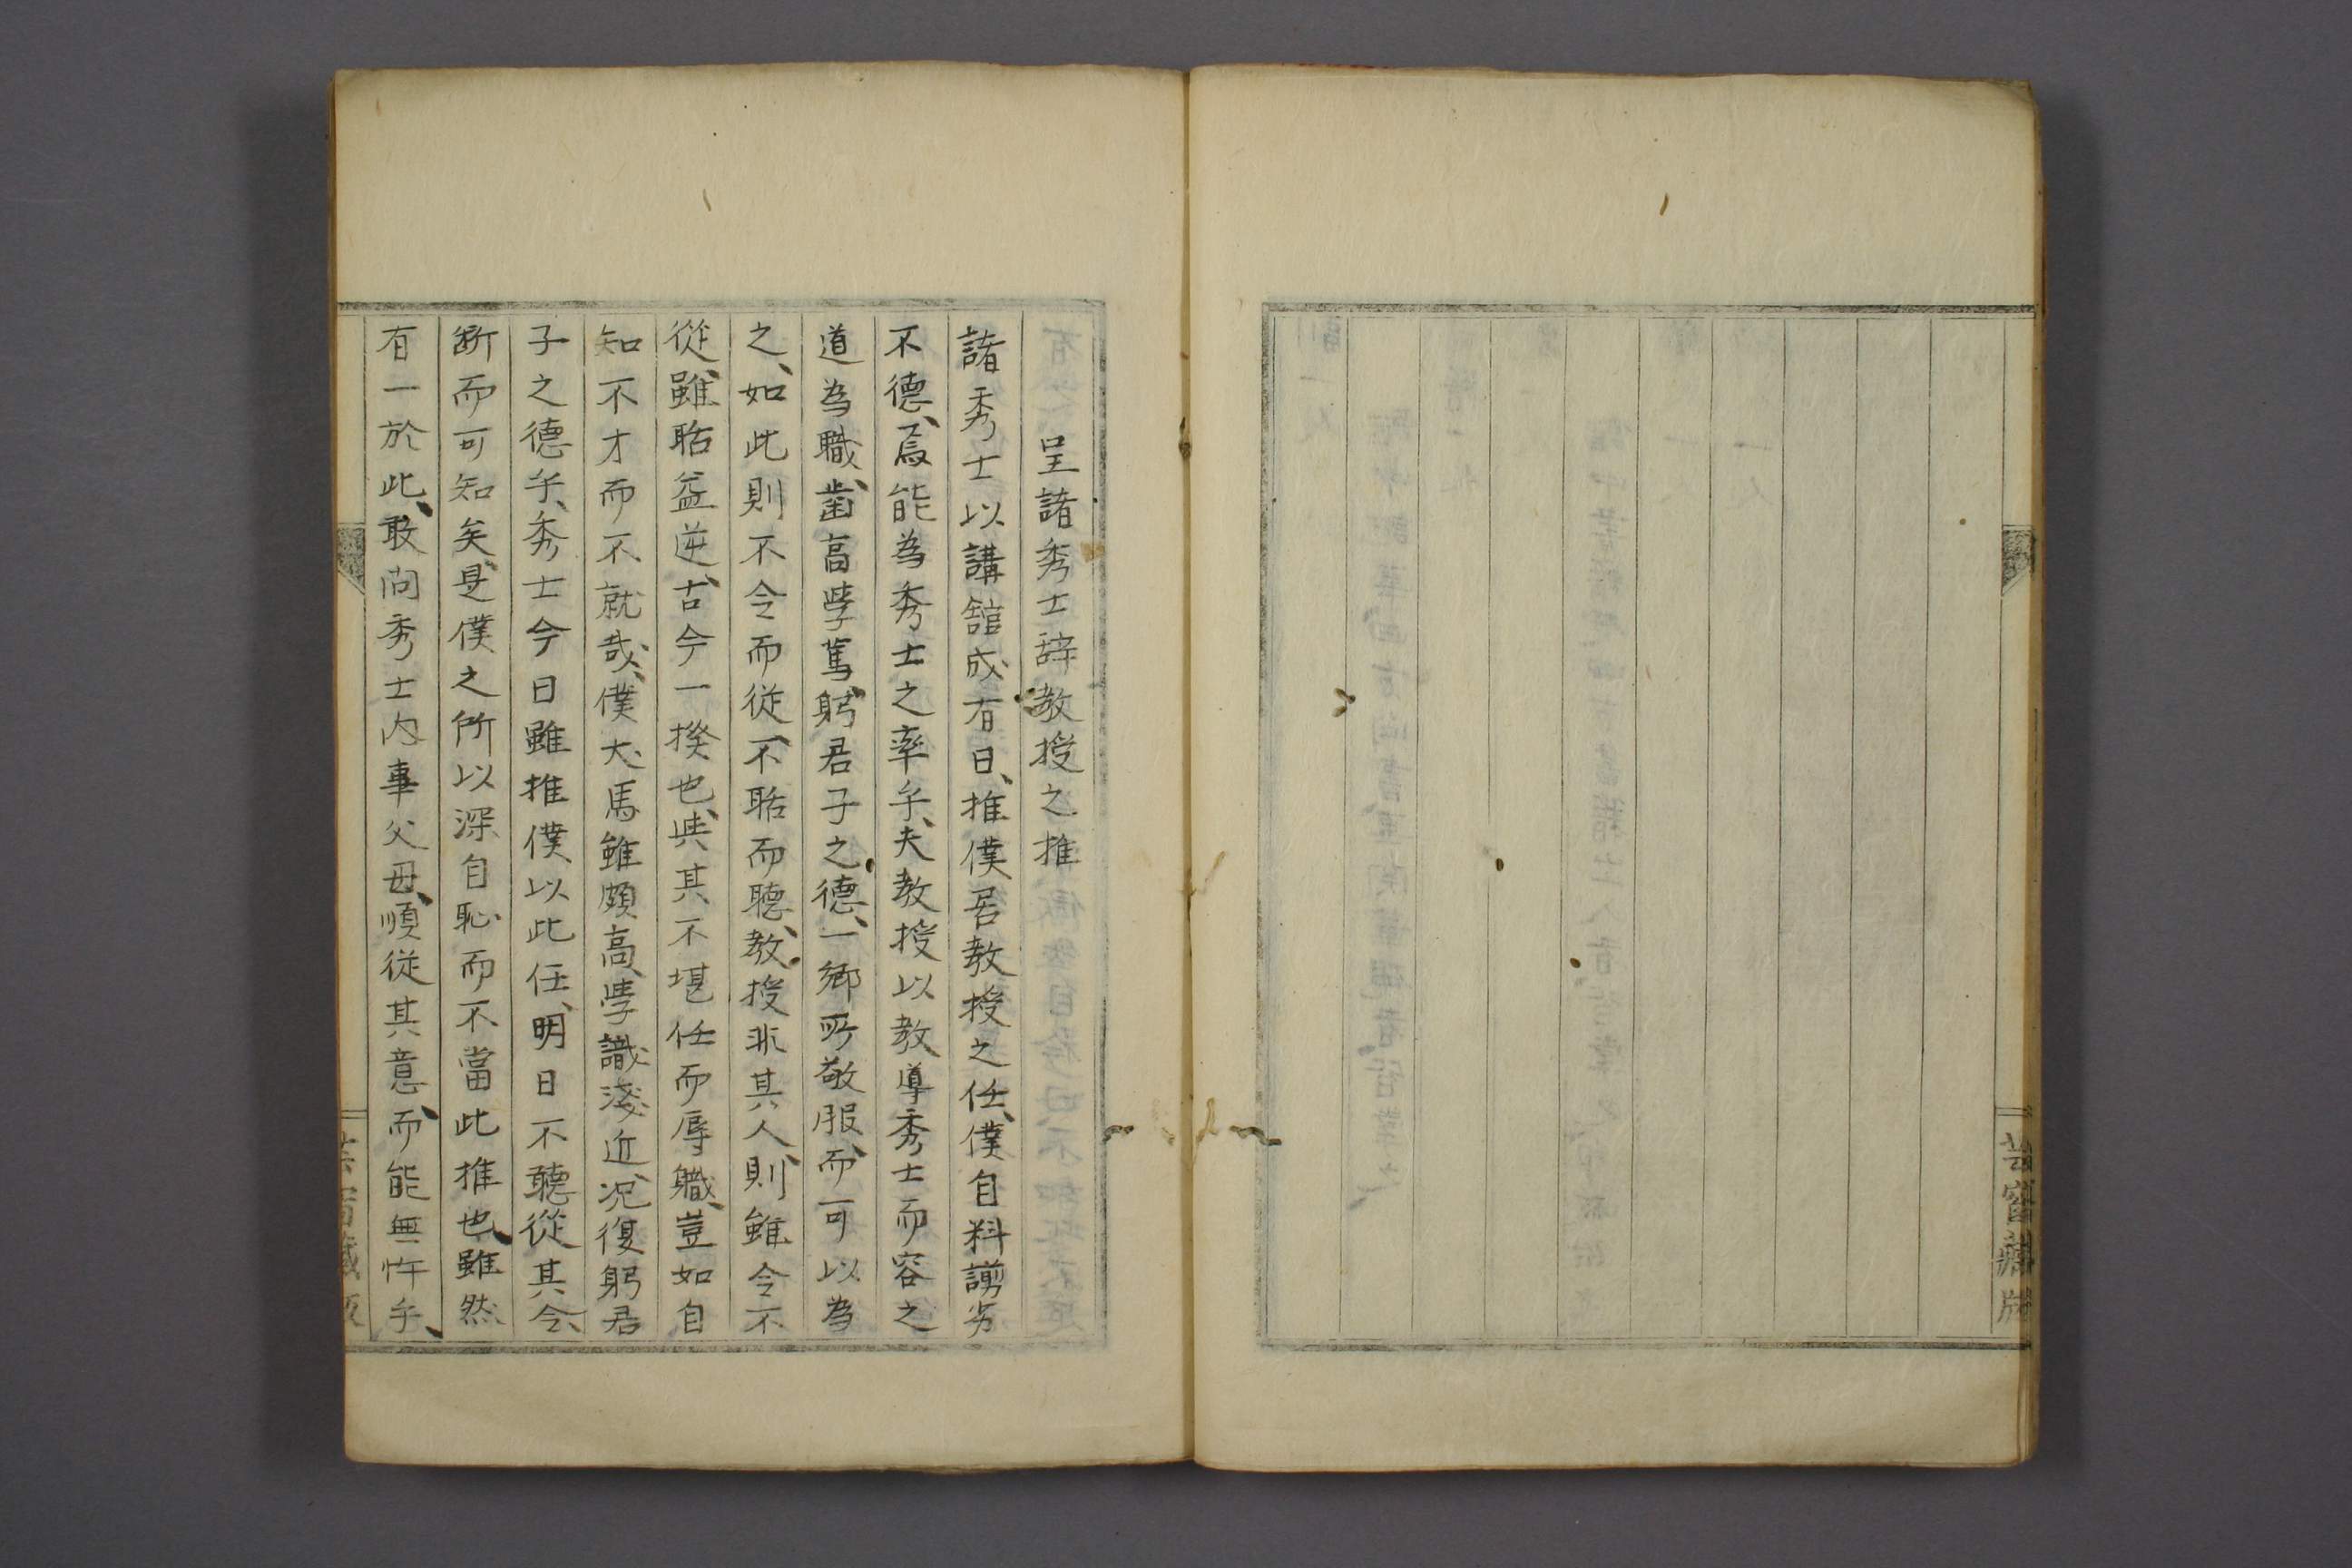 芸窗藏版
呈諸秀士辞教授之推
諸秀士以講舘成有日、推僕居教授之任、僕自料謭劣
不德、焉能為秀士之率乎、夫教授以教導秀士而容之
道為職、歯高學篤、躬君子之德、一鄉所敬服、而可以為
之、如此則不令而從、不聒而聽、教授非其人、則雖令不
從、雖聒益逆、古今一揆也、與其不堪任而辱職、豈如自
知不才而不就哉、僕犬馬雖頗高、學識淺近、况復躬君
子之德乎、秀士今日雖推僕以此任、明日不聽從其令、
断而可知矣、是僕之所以深自恥而不當此推也、雖然
有一於此、敢問秀士内事父母、順從其意、而能無忤乎、